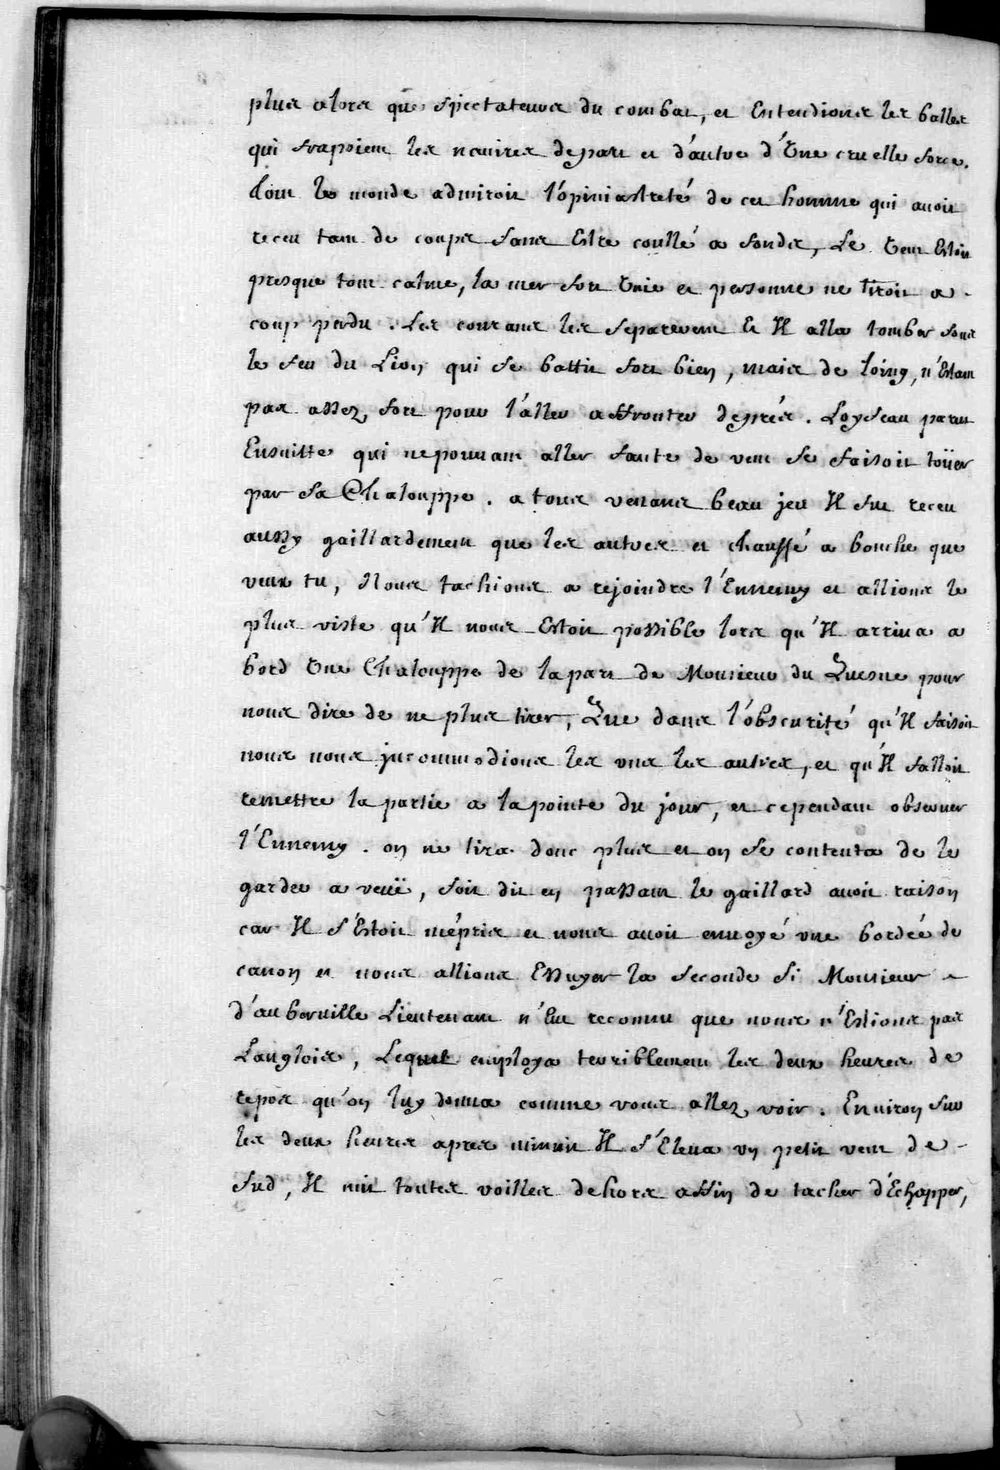 plus alors que spectateurs du combat, et Entendions les balles
qui frapoient les navires depart et d'autre d'Une cruelle force.
tout le monde admiroit l'opiniastreté de cet homme qui avoit
receu tant de coups sans Estre coullé a fonds, Le Vent Estoit
presque tout calme, la mer fort Unie et personne ne tiroit a
coup perdu. Les courants les separerent Et Il alla tomber sous
le feu du Lion qui se battit fort bien, mais de loing, n'Estant
pas assez fort pour l'aller affronter depres. Loyseau parut
Ensuitte qui nepouvant aller faute de vent se faisoit toüer
par sa Chalouppe. a tous venans beau jeu Il fut receu
aussy gaillardement que les autres et chaussé a bouche que
veux tu, Nous tachions a rejoindre l'Ennemy et allions le
plus viste qu'Il nous Estoit possible lors qu'Il arriva a
bord Une Chalouppe de lapart de Monsieur du Quesne pour
nous dire de ne plus tirer, Que dans l'obscurité qu'Il faisoit
nous nous jncommodions les uns les autres, et qu'Il falloit
remettre la partie a lapointe du jour, et cependant observer
l'Ennemy. on ne tira donc plus et on se contenta de le
garder a veüe, soit dit en passant le gaillard avoit raison
car Il s'Estoit mépris et nous avoit envoyé une bordée de
canon et nous allions Essuyer la seconde si Monsieur
d'auberville Lieutenant n'Eut reconnu que nous n'Estions pas
Langlois, Lequel employa terriblement les deux heures de
repos qu'on luy donna comme vous allez voir. Environ sur
les deux heures apres minuit Il s'Eleva un petit vent de
Sud, Il mit toutes voilles dehors affin de tacher d'Echapper,